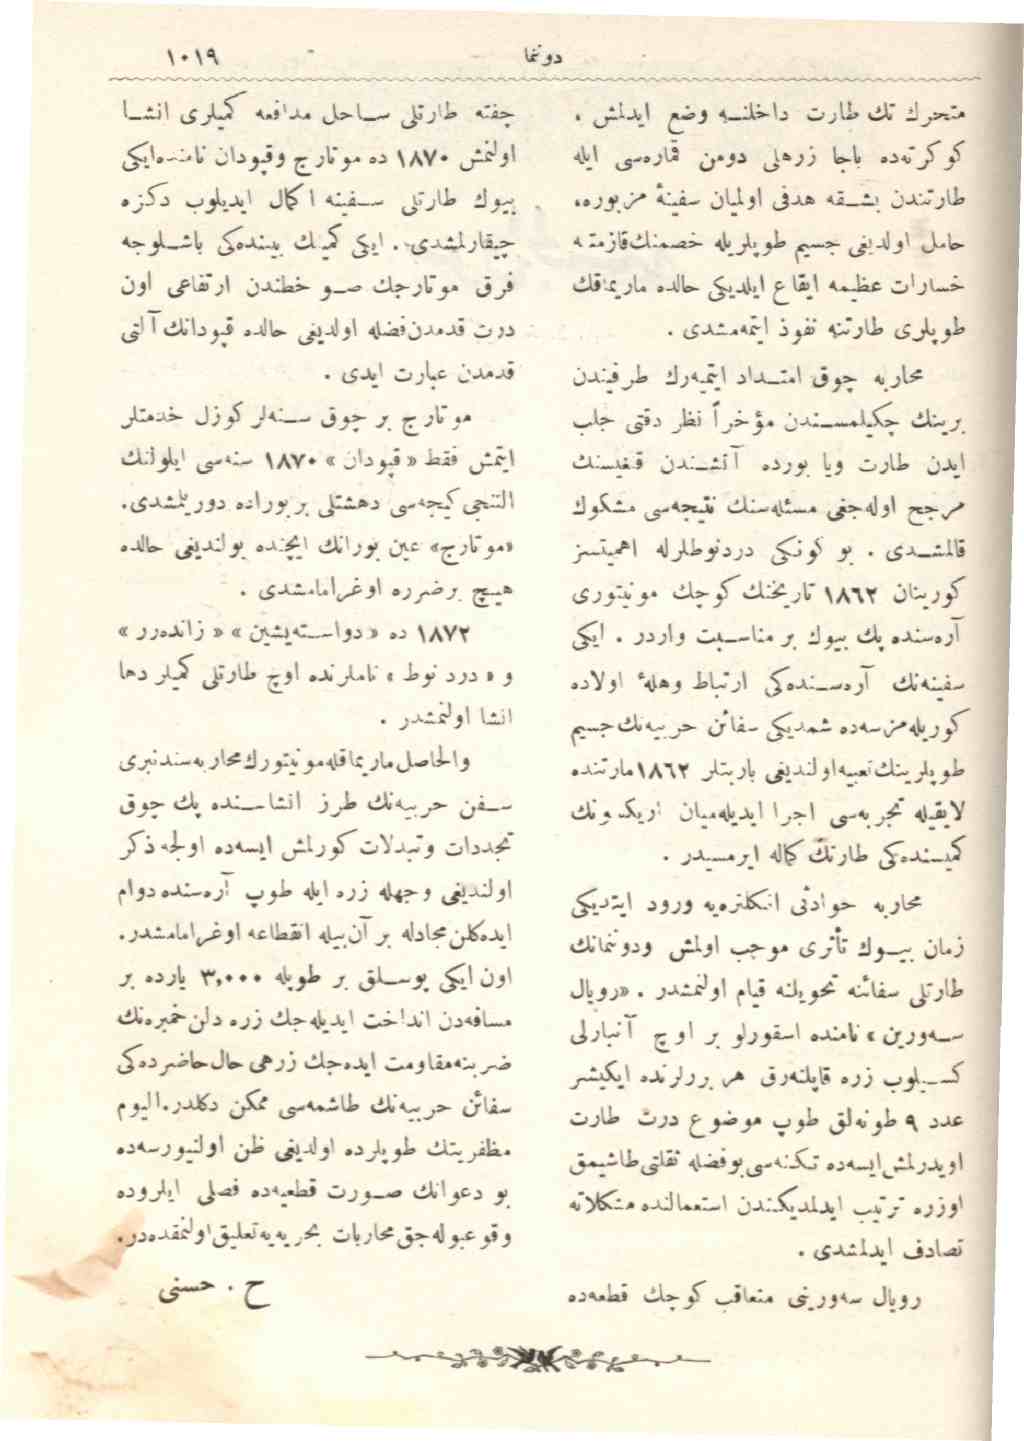 دوننما
١٠١٩
متحرك تك طارت داخلنـه وضع ايدلمش .
كوكرته‌ده باجا زرهلى دومن قماره‌سى ايله
طارتندن بشـقه هدفى اولميان سفينهٔ مزبوره،
حامل اولديغى جسيم طوپلريله خصمنك قازمتنه
خسارات عظيمه ايقاع ايلديكى حالده ماريماقك
طوپلرى طارتنه نفوذ ايتمه‌مشدى .
محاربه چوق امتـداد ايتميه‌رك طرفيندن
برينك چكيلمسـندن مؤخراً نظر دقتى جلب
ايدن طارت ويا بورده آتشـندن قنغيسنك
مرجح اوله‌جغى مسئله‌سنك نتيجه‌سى مشكوك
قالمشـدى . بو كونكى دردنوطلرله اهميتسز
كورينان ١٨٦٢ تاريخنك كوچك مونيتورى
آره‌سنده پك بيوك بر مناسـبت واردر . ايكى
سفينه‌نك آره‌سـنده‌كى ارتباط وهلهٔ اولاده
كوريله‌مزسه‌ده شمديكى سفائن حربيه‌نك جسيم
طوپلرينك تعبيه اولنديغى باربتلر ١٨٦٢ مارتنده
لايقيله تجربه‌سى اجرا ايديله‌ميان اريكسونك
كميسنده‌كى طارتك كماله ايرمسيدر .
محاربه حوادثى انكلتره‌يه ورود ايتديكى
زمان بيـوك تأثرى موجب اولمش ودوننمانك
طارتلى سفائنه تحويلنه قيام اولنمشدر . «رويال
سـه‌ورين» نامنده اسقورلو بر اوچ آنبارلى
كسـيلوب زره قاپلنه‌رق هر بررلرنده ايكيشر
عدد ٩ طونه‌لق طوپ موضوع درت طارت
اويدرلمش ايسه‌ده تكنه‌سى بوفضله ثقلتى طاشيمق
اوزره ترتيب ايدلمديكندن استعمالنده مشكلاته
تصادف ايدلمشدى .
رويال سه‌ورينى متعاقب كوچك قطعه‌ده
چفته طارتلى سـاحل مدافعه كميلرى انشـا
اولنمش ١٨٧٠ ده مونارج وقپودان نامنده‌ايكى
بيوك طارتلى سـفينه اكمال ايديلوب دكزه
چيقارلمشدى . ايكى كمينك بيننده‌كى باشـلوجه
فرق مونارجك صـو خطندن ارتفاعى اون
درت قدمدن‌فضله اولديغى حالده قپودانك آلتى
قدمدن عبارت ايدى .
مونارج بر چوق سـنه‌لر كوزل خدمتلر
ايتمش فقط «قپودان» ١٨٧٠ سنه‌سى ايلولنك
التنجى كيجه‌سى دهشتلى بربوراده دوريلمشدى.
«مونارج» عين بورانك ايچنده بولنديغى حالده
هيـچ برضرره اوغرامامشدى .
١٨٧٢ ده «دواسـته‌يشين» «زانده‌رر»
و «درد نوط» ناملرنده اوچ طارتلى كميلر دها
انشا اولنمشدر .
والحاصل ماريماقله‌مونيتورك محاربه‌سندنبرى
سـفن حربيه‌نك طرز انشاسـنده پك چوق
تجددات وتبدلات كورلمش ايسه‌ده اولجه ذكر
اولنديغى وجهله زره ايله طوپ آره‌سنده دوام
ايده‌كلن مجادله بر آن‌بيله انقطاعه اوغرامامشدر.
اون ايكى پوسـلق بر طوپله ٣,٠٠٠ يارده بر
مسافه‌دن انداخت ايديله‌جك زره دلن خمبره‌نك
ضربنه‌مقاومت ايده‌جك زرهى حال حاضرده‌كى
سفائن حربيه‌نك طاشمه‌سى ممكن دكلدر. اليوم
مظفريتك طوپلرده اولديغى ظن اولنيورسه‌ده
بو دعوانك صـورت قطعيه‌ده فصلى ايلروده
وقوعبوله‌جق محاربات بحريه‌يه تعليق اولنمقده‌در.
ح . حسنى